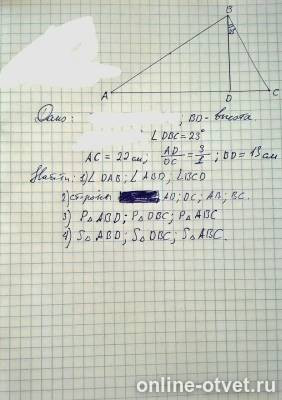 B
23°
A D C
Дано: ; BD - высота.
∠DBC = 23°
AC = 22 см; AD/DC = 3/1; BD = 13 см
Найти: 1) ∠DAB; ∠ABD; ∠BCD
2) стороны AD; DC; AB; BC.
3) P△ ABD; P△ DBC; P△ ABC
4) S△ ABD; S△ DBC; S△ ABC.
online-otvet.ru